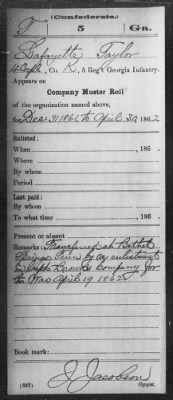 (Confederate.)
T 5 Ga.
Lafayette Taylor
4 Corpl., Co. K, 5 Reg't Georgia Infantry.
Appears on
Company Muster Roll
of the organization named above,
for Dec 31, 1861, to April 30, 1862
Enlisted:
When , 186 .
Where
By whom
Period
Last paid:
By whom
To what time , 186 .
Present or absent
Remarks: Transferred at Bethel
Springs Tenn by
Company for
the War April 19 1862
Book mark:
J. Jacobson
(642) Copyist.